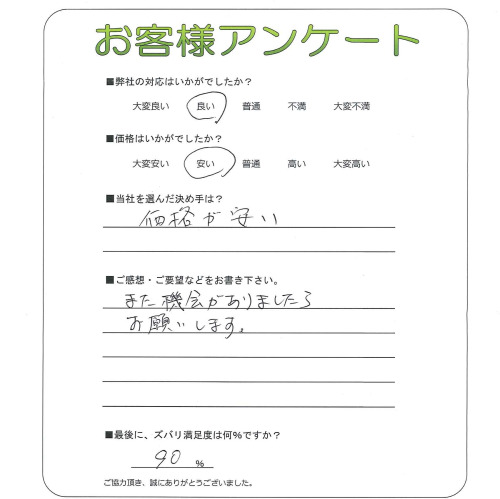 お客様アンケート
■弊社の対応はいかがでしたか？
大変良い 良い 普通 不満 大変不満
■価格はいかがでしたか？
大変安い 安い 普通 高い 大変高い
■当社を選んだ決め手は？
価格が安い
■ご感想・ご要望などをお書き下さい。
また機会がありましたら
お願いします。
■最後に、ズバリ満足度は何%ですか？
90 %
ご協力頂き、誠にありがとうございました。